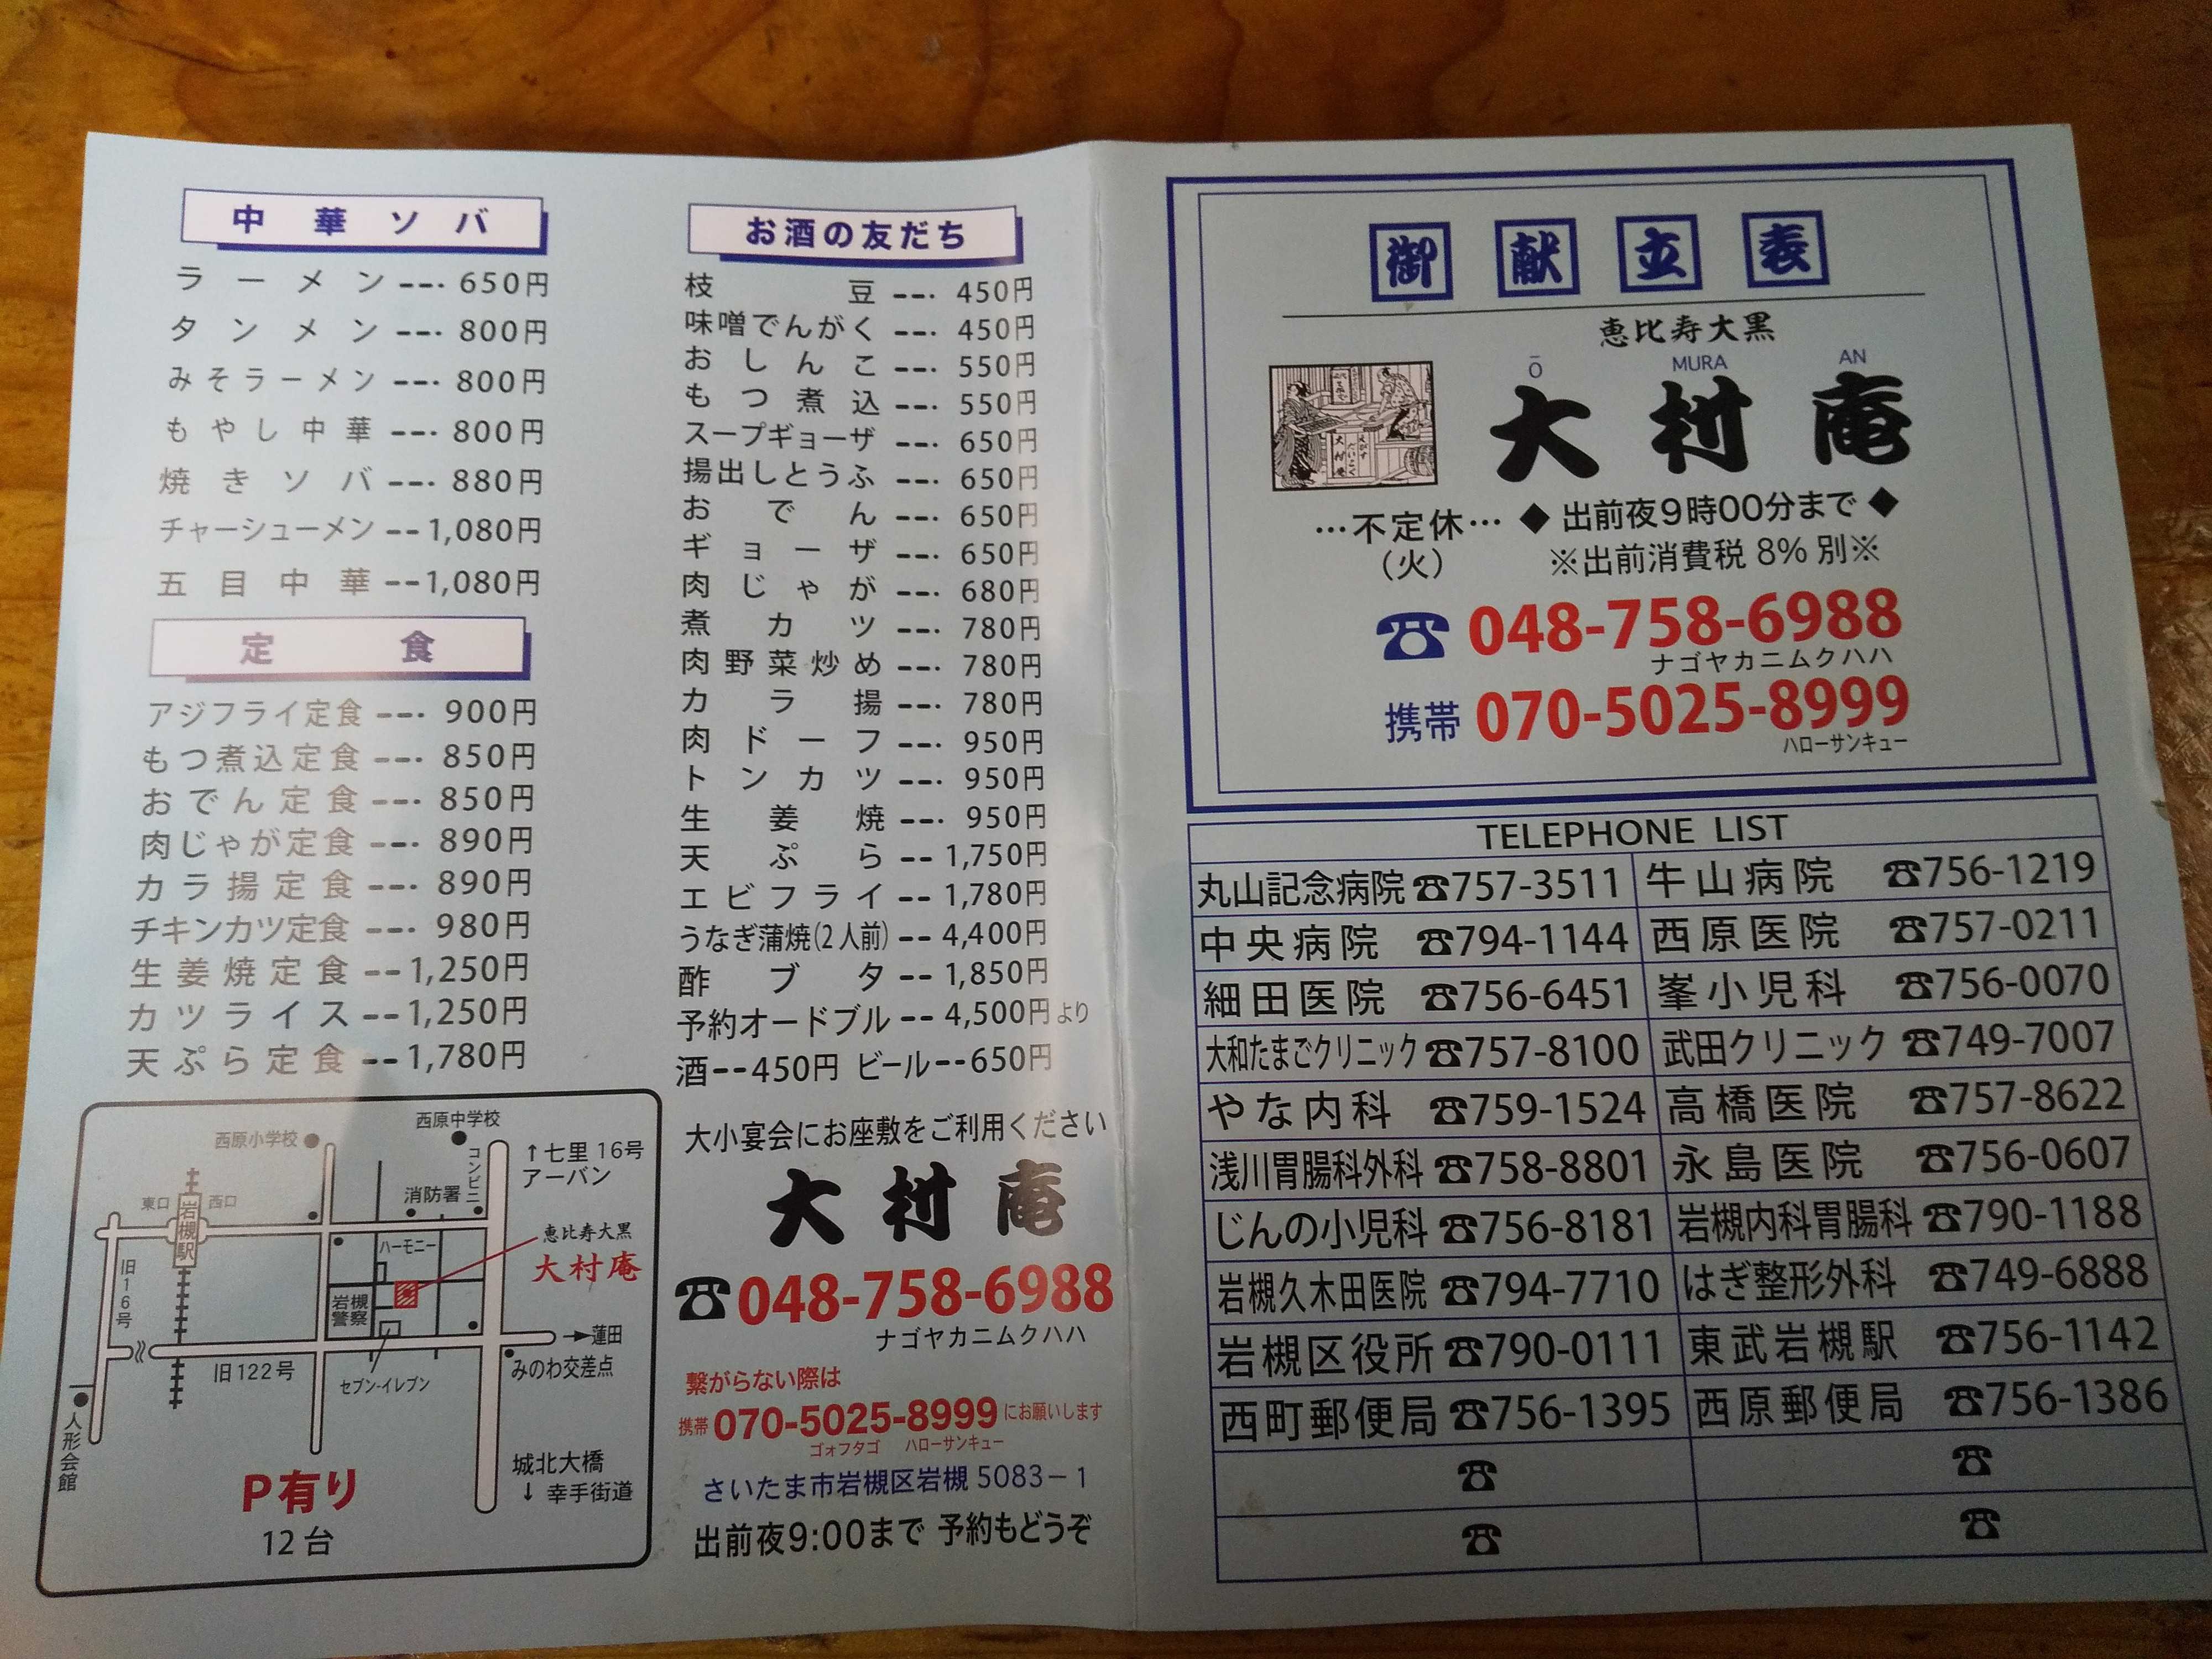 中華ソバ
ラーメン---650円
タンメン---800円
みそラーメン---800円
もやし中華---800円
焼きソバ---880円
チャーシューメン--1,080円
五目中華--1,080円
定食
アジフライ定食---900円
もつ煮込定食---850円
おでん定食---850円
肉じゃが定食---890円
カラ揚定食---890円
チキンカツ定食---980円
生姜焼定食--1,250円
カツライス--1,250円
天ぷら定食--1,780円
西原小学校
西原中学校
コンビニ
↑七里16号
アーバン
消防署
東口
岩槻駅
西口
ハーモニー
恵比寿大黒
大村庵
旧16号
岩槻警察
→蓮田
みのわ交差点
旧122号
セブン-イレブン
人形会館
P有り
12台
城北大橋
↓幸手街道
お酒の友だち
枝豆---450円
味噌でんがく---450円
おしんこ---550円
もつ煮込---550円
スープギョーザ---650円
揚出しとうふ---650円
おでん---650円
ギョーザ---650円
肉じゃが---680円
煮カツ---780円
肉野菜炒め---780円
カラ揚---780円
肉ドーフ---950円
トンカツ---950円
生姜焼---950円
天ぷら--1,750円
エビフライ--1,780円
うなぎ蒲焼(2人前)--4,400円
酢ブタ--1,850円
予約オードブル--4,500円より
酒--450円 ビール--650円
大小宴会にお座敷をご利用ください
大村庵
☎048-758-6988
ナゴヤカニムクハハ
繋がらない際は
携帯070-5025-8999にお願いします
ゴォフタゴ ハローサンキュー
さいたま市岩槻区岩槻5083-1
出前夜9:00まで 予約もどうぞ
御献立表
恵比寿大黒
Ō MURA AN
大村庵
…不定休…
(火)
◆出前夜9時00分まで◆
※出前消費税8%別※
☎048-758-6988
ナゴヤカニムクハハ
携帯070-5025-8999
ハローサンキュー
TELEPHONE LIST
丸山記念病院☎757-3511 牛山病院☎756-1219
中央病院☎794-1144 西原医院☎757-0211
細田医院☎756-6451 峯小児科☎756-0070
大和たまごクリニック☎757-8100 武田クリニック☎749-7007
やな内科☎759-1524 高橋医院☎757-8622
浅川胃腸科外科☎758-8801 永島医院☎756-0607
じんの小児科☎756-8181 岩槻内科胃腸科☎790-1188
岩槻久木田医院☎794-7710 はぎ整形外科☎749-6888
岩槻区役所☎790-0111 東武岩槻駅☎756-1142
西町郵便局☎756-1395 西原郵便局☎756-1386
☎ ☎
☎ ☎